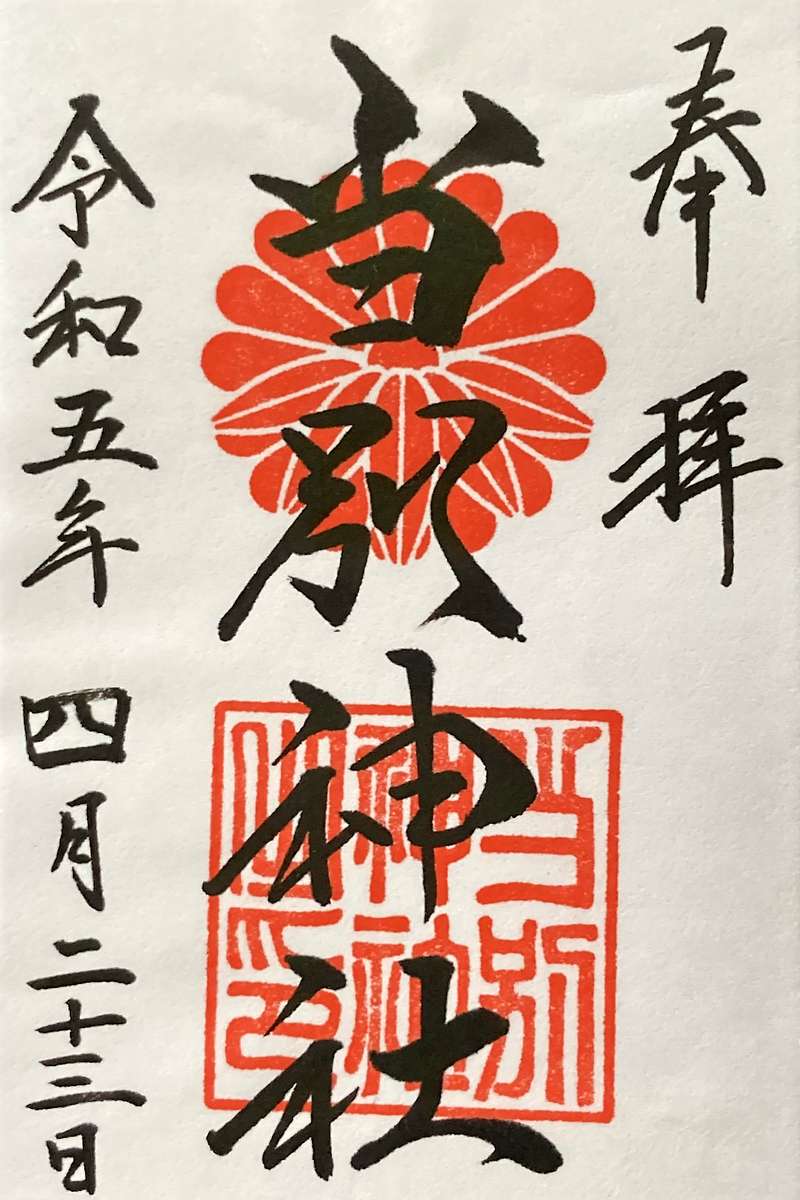 奉拝
当別神社
当別
神社
令和五年 四月二十三日